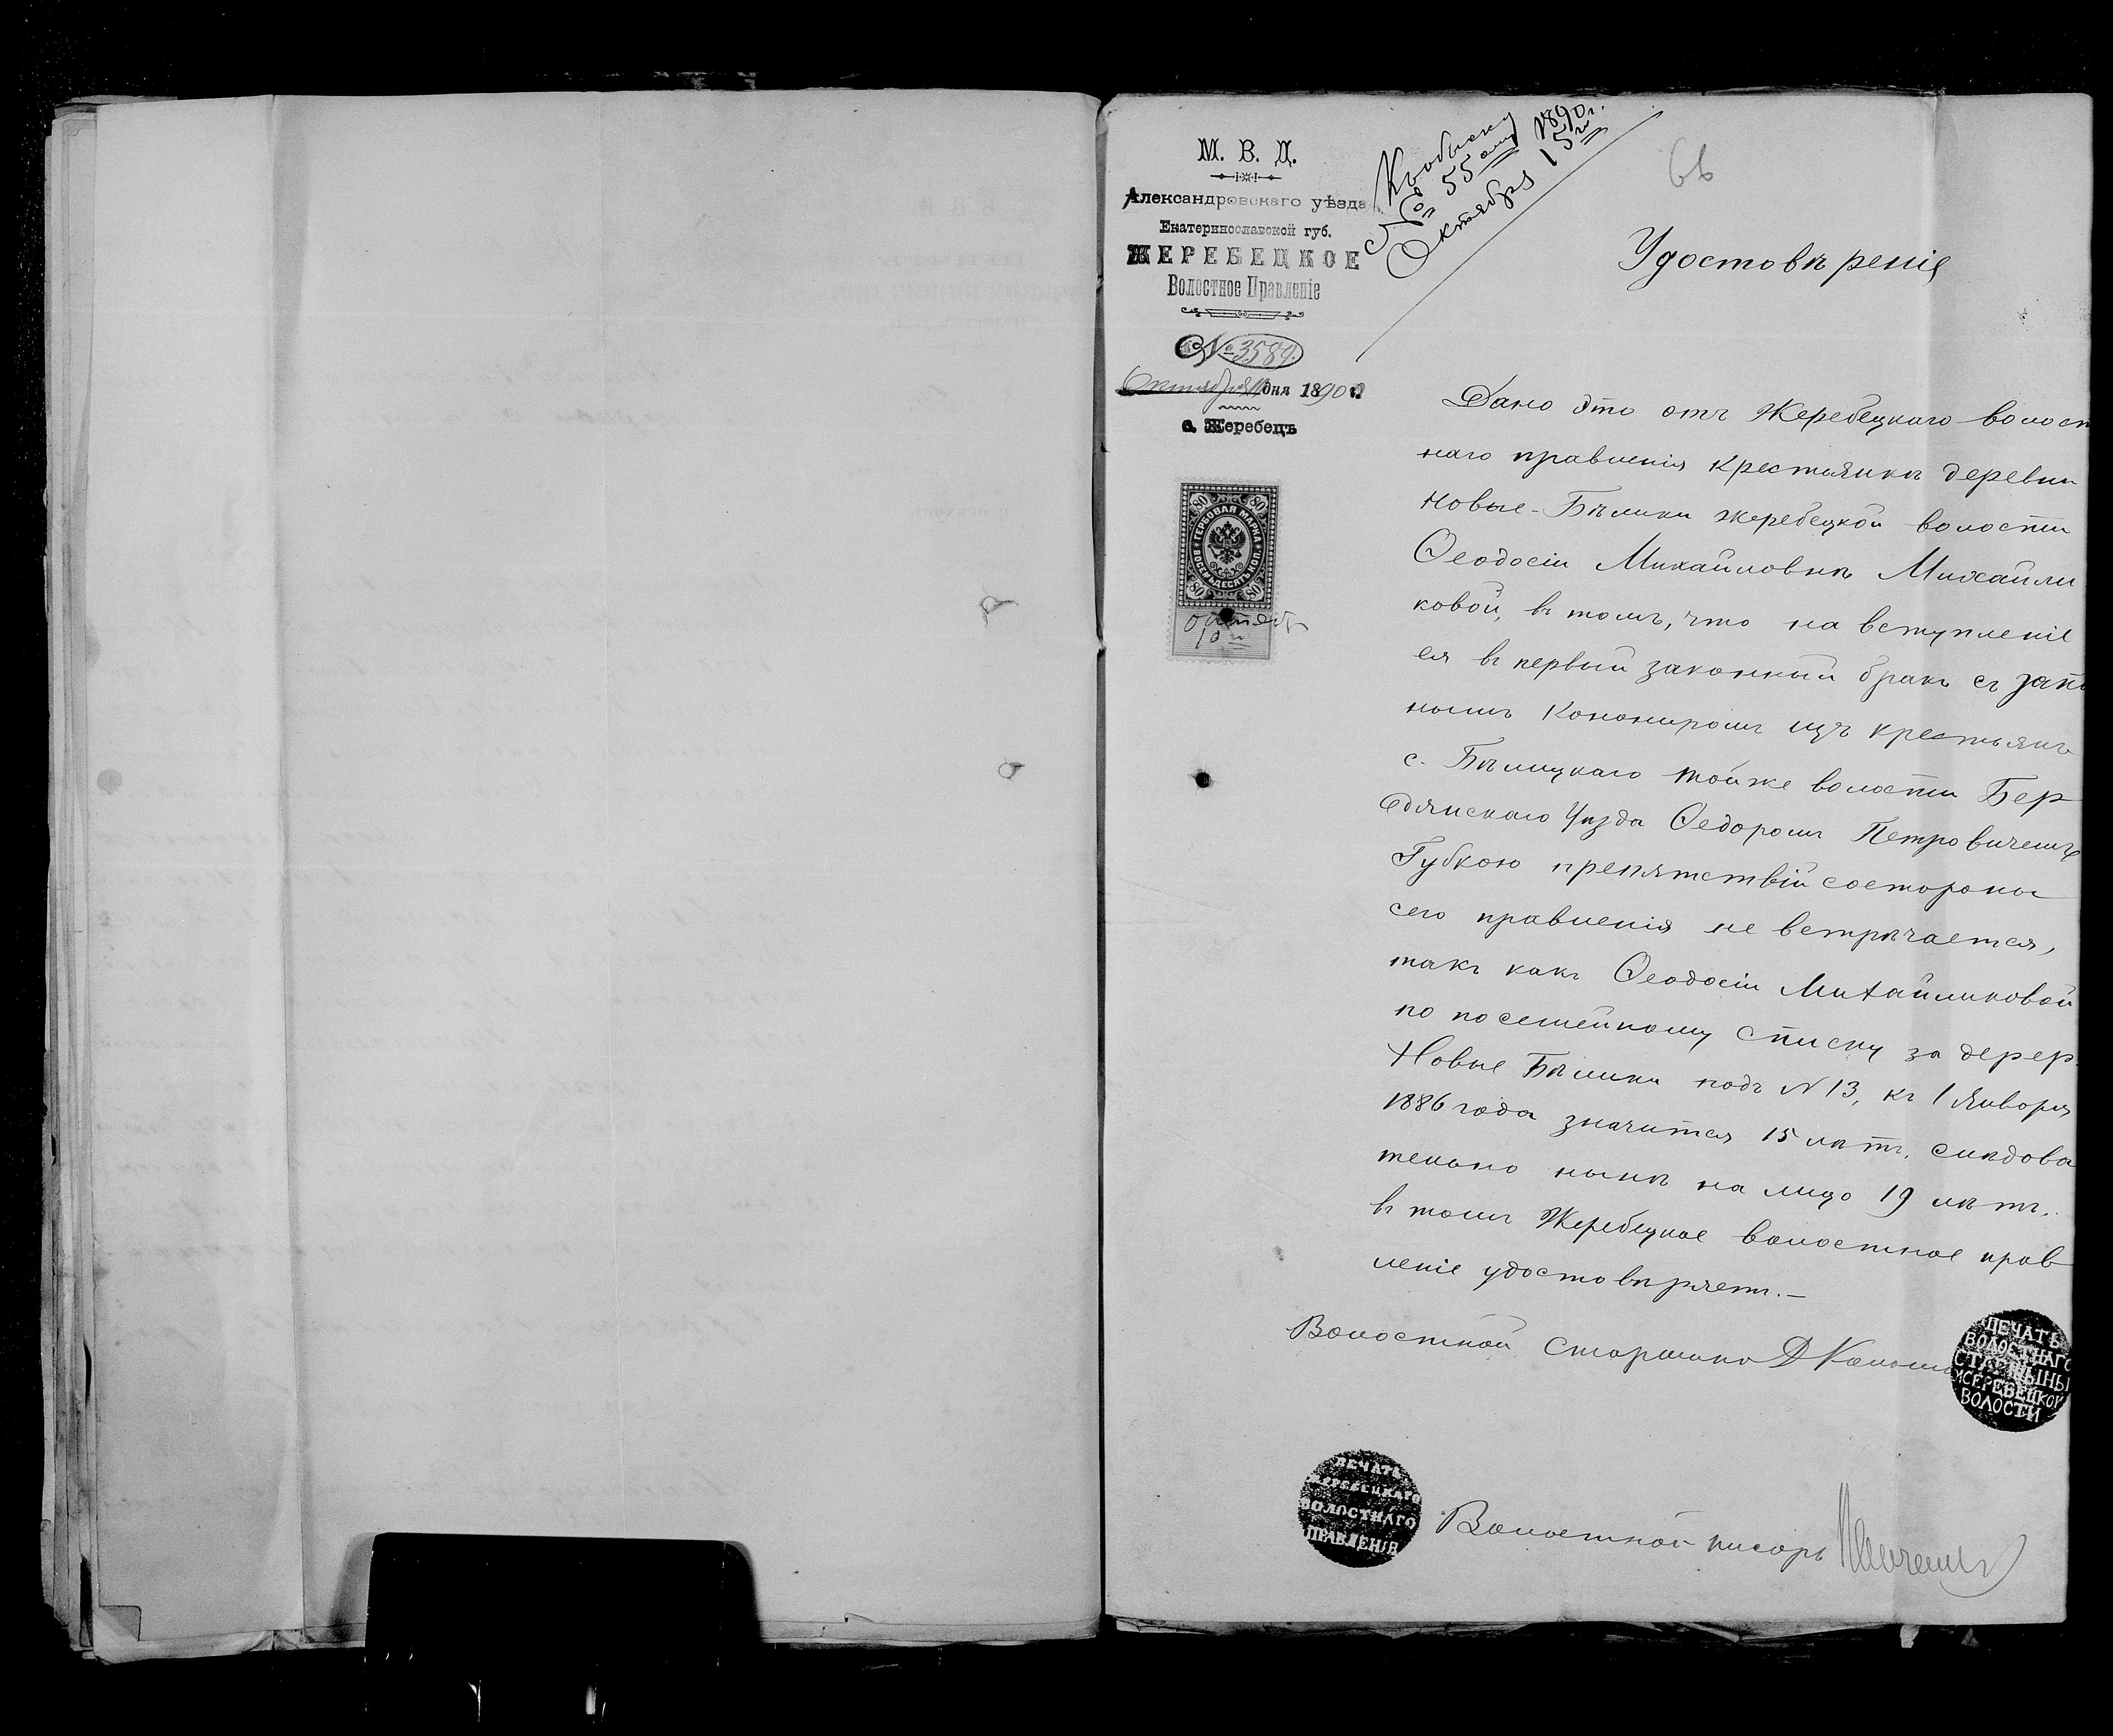 М. В. Д.
Александровскаго уѣзда
Екатеринославской губ.
ЖЕРЕБЕЦКОЕ
Волостное Правленіе
№ 3589.
Октября дня 1890 г.
с. Жеребецъ
К обыску
№ 55 1890 г.
Октября 15
66
Удостовѣренія
80 80
ГЕРБОВАЯ МАРКА
ВОСЕМЬДЕСЯТЪ КОП.
80 80
октяб
10
Дано это отъ Жеребецкаго волост
наго правленія крестьянкѣ деревни
Новые-Бѣлики жеребецкой волости
Ѳеодосіи Михайловнѣ Михайли
ковой, въ томъ, что на вступленіе
ея въ первый законный бракъ съ запа
нымъ Канониромъ изъ крестьянъ
с. Бѣлицкаго той же волости Бер
дянскаго Уѣзда Ѳедоромъ Петровичемъ
Губкою препятствій состороны
сего правленія не встрѣчается,
такъ какъ Ѳеодосіи Михайликовой
по посемейному списку за дерев.
Новые Бѣлики подъ № 13, къ 1 Января
1886 года значится 15 лѣтъ, слѣдова
тельно нынѣ на лицо 19 лѣтъ.
въ томъ Жеребецкое волостное прав
леніе удостовѣряетъ.—
Волостной Старшина Д
ПЕЧАТЬ
ВОЛОСТНАГО
СТАРШИНЫ
ЖЕРЕБЕЦКОЙ
ВОЛОСТИ
ПЕЧАТЬ
ЖЕРЕБЕЦКАГО
ВОЛОСТНАГО
ПРАВЛЕНІЯ
Волостной писарь